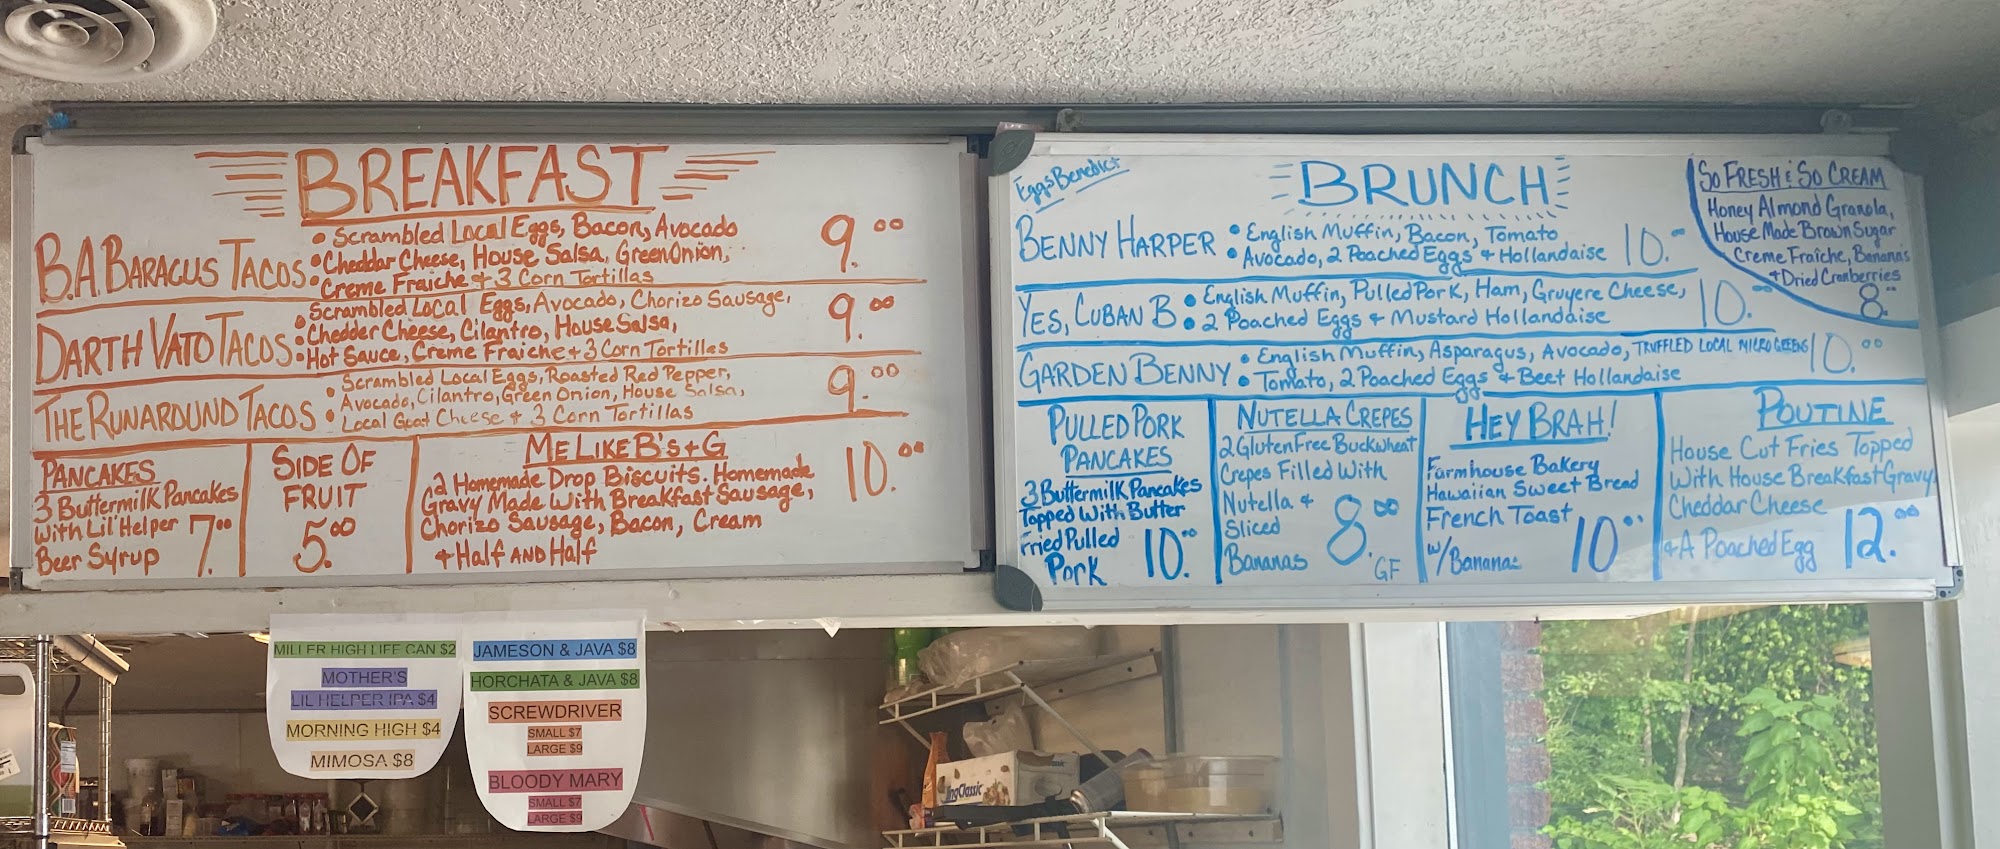 BREAKFAST
B.A. BARACUS TACOS
• Scrambled Local Eggs, Bacon, Avocado
• Cheddar Cheese, House Salsa, Green Onion,
• Creme Fraiche + 3 Corn Tortillas
9.00
DARTH VATO TACOS
• Scrambled Local Eggs, Avocado, Chorizo Sausage,
• Chedder Cheese, Cilantro, House Salsa,
• Hot Sauce, Creme Fraiche + 3 Corn Tortillas
9.00
THE RUNAROUND TACOS
• Scrambled Local Eggs, Roasted Red Pepper,
• Avocado, Cilantro, Green Onion, House Salsa,
• Local Goat Cheese + 3 Corn Tortillas
9.00
PANCAKES
3 Buttermilk Pancakes
With Lil' Helper
Beer Syrup
7.00
SIDE OF
FRUIT
5.00
ME LIKE B's + G
2 Homemade Drop Biscuits. Homemade
Gravy Made With Breakfast Sausage,
Chorizo Sausage, Bacon, Cream
+ Half AND Half
10.00
Eggs Benedict
BRUNCH
BENNY HARPER
• English Muffin, Bacon, Tomato
• Avocado, 2 Poached Eggs + Hollandaise
10.
YES, CUBAN B
• English Muffin, Pulled Pork, Ham, Gruyere Cheese,
• 2 Poached Eggs + Mustard Hollandaise
10.
GARDEN BENNY
• English Muffin, Asparagus, Avocado, TRUFFLED LOCAL MICRO GREENS
• Tomato, 2 Poached Eggs + Beet Hollandaise
10.00
SO FRESH & SO CREAM
Honey Almond Granola,
House Made Brown Sugar
Creme Fraiche, Bananas
+ Dried Cranberries
8.00
PULLED PORK
PANCAKES
3 Buttermilk Pancakes
Topped With Butter
Fried Pulled
Pork
10.00
NUTELLA CREPES
2 Gluten Free Buckwheat
Crepes Filled With
Nutella +
Sliced
Bananas
8.00
GF
HEY BRAH!
Farmhouse Bakery
Hawaiian Sweet Bread
French Toast
w/ Bananas
10.00
POUTINE
House Cut Fries Topped
With House Breakfast Gravy
Cheddar Cheese
+ A Poached Egg
12.00
MILLER HIGH LIFE CAN $2
MOTHER'S
LIL HELPER IPA $4
MORNING HIGH $4
MIMOSA $8
JAMESON & JAVA $8
HORCHATA & JAVA $8
SCREWDRIVER
SMALL $7
LARGE $9
BLOODY MARY
SMALL $7
LARGE $9